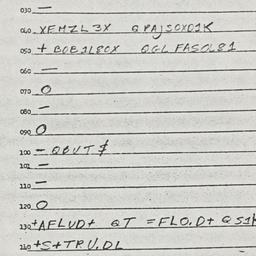 030 —
040 XFMZL3X QPAJSOXO1K
050 + BOB1L8OX QGLFASOL81
060 —
070 O
080 —
090 O
100 - QBUT$
101 —
110 —
120 O
130 +AFLUD+ QT =FLO.D+ QS1K
140 +S+TRU.DL